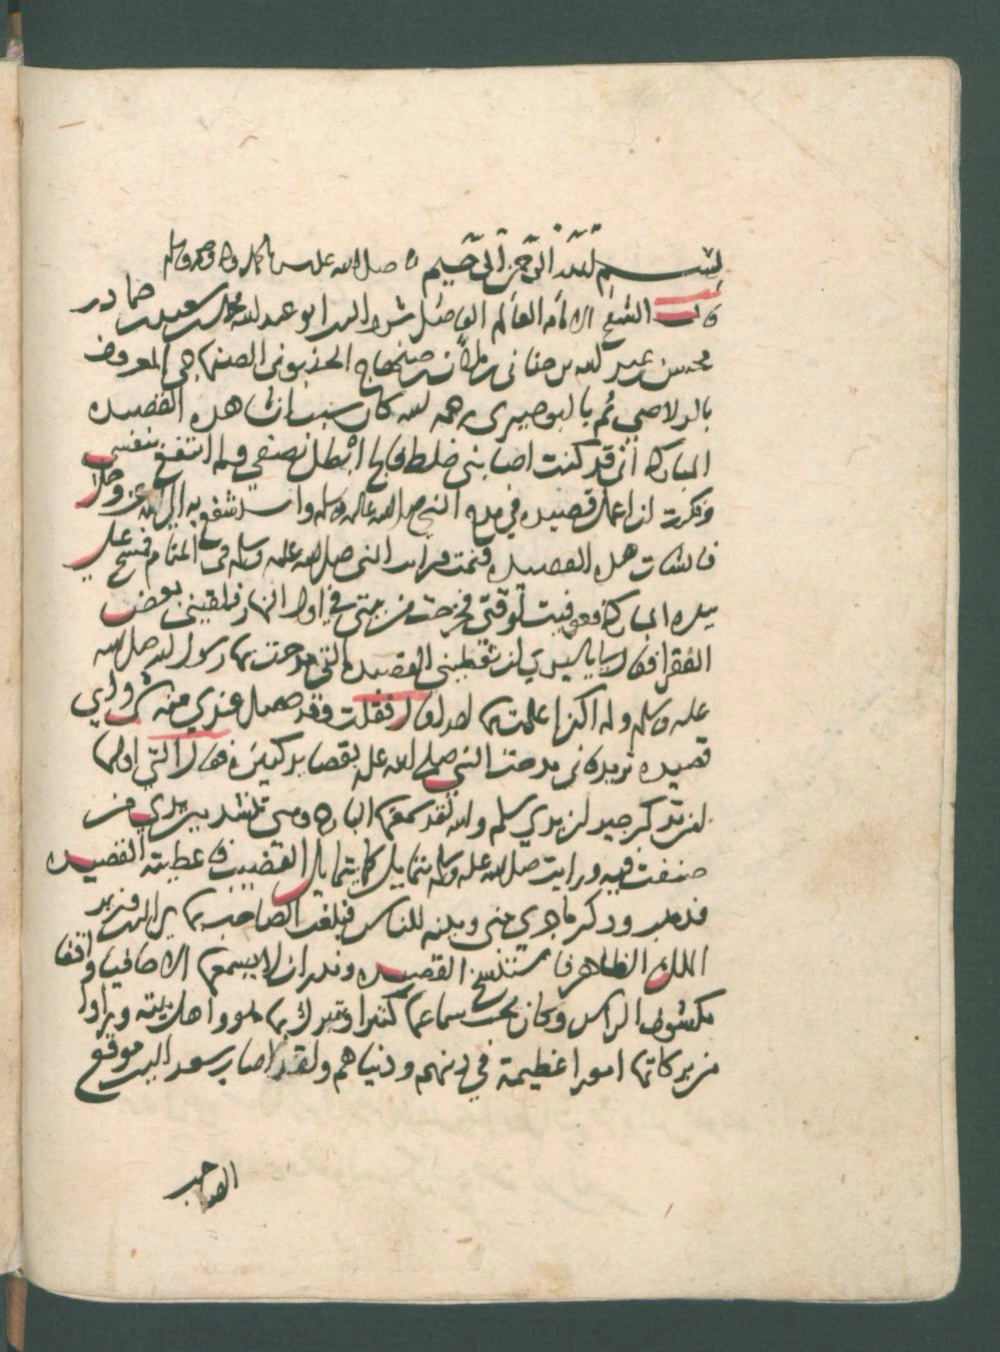 بسم الله الرحمن الرحيم صلى الله على سيدنا محمد واله وصحبه وسلم
قال الشيخ الامام العالم الفاضل شرف الدين ابو عبد الله محمد بن سعيد بن حماد بن
محسن بن عبد الله بن صنهاج الصنهاجي المعروف
بالدلاصي ثم بالبوصيري رحمه الله كان سبب انشا هذه القصيده
المباركه انى قد كنت اصابنى خلط فالج ابطل نصفي ولم انتفع بنفسى
ففكرت ان اعمل قصيده في مدح النبي صلى الله عليه وسلم واستشفع به الى الله عز وجل
فانشات هذه القصيده فنمت فرايت النبى صلى الله عليه وسلم فى المنام فمسح على
بيده المباركة فعوفيت لوقتى فخرجت من بيتى في اول النهار فلقينى بعض
الفقرا فقال لى يا سيدي اريد ان تعطينى القصيده التى مدحت بها رسول الله صلى الله
عليه وسلم ولم اكن اعلمت بها احدا فقلت وقد حصل عندي منه شي واي
قصيده تريد فانى مدحت النبي صلى الله عليه بقصايد كثيره فقال التى اولها
امن تذكر جيران بذي سلم والله لقد سمعتها البارحه وهى تنشد بين يدي من
صنفت فيه ورايت صلى الله عليه وسلم يتمايل كما يتمايل القضيب فاعطيته القصيده
فذهب وذكر ما جري منى ومنه للناس فبلغت الصاحب بها الدين وزير
الملك الظاهر فاستنسخ القصيده ونذر ان لا يسمعها الا حافيا واقفا
مكشوف الراس وكان يحب سماعها كثيرا وتبرك بها هو واهل بيته وراوا
من بركاتها امورا عظيمة في دينهم ودنياهم ولقد اصاب سعد الدين موقع
الصاحب